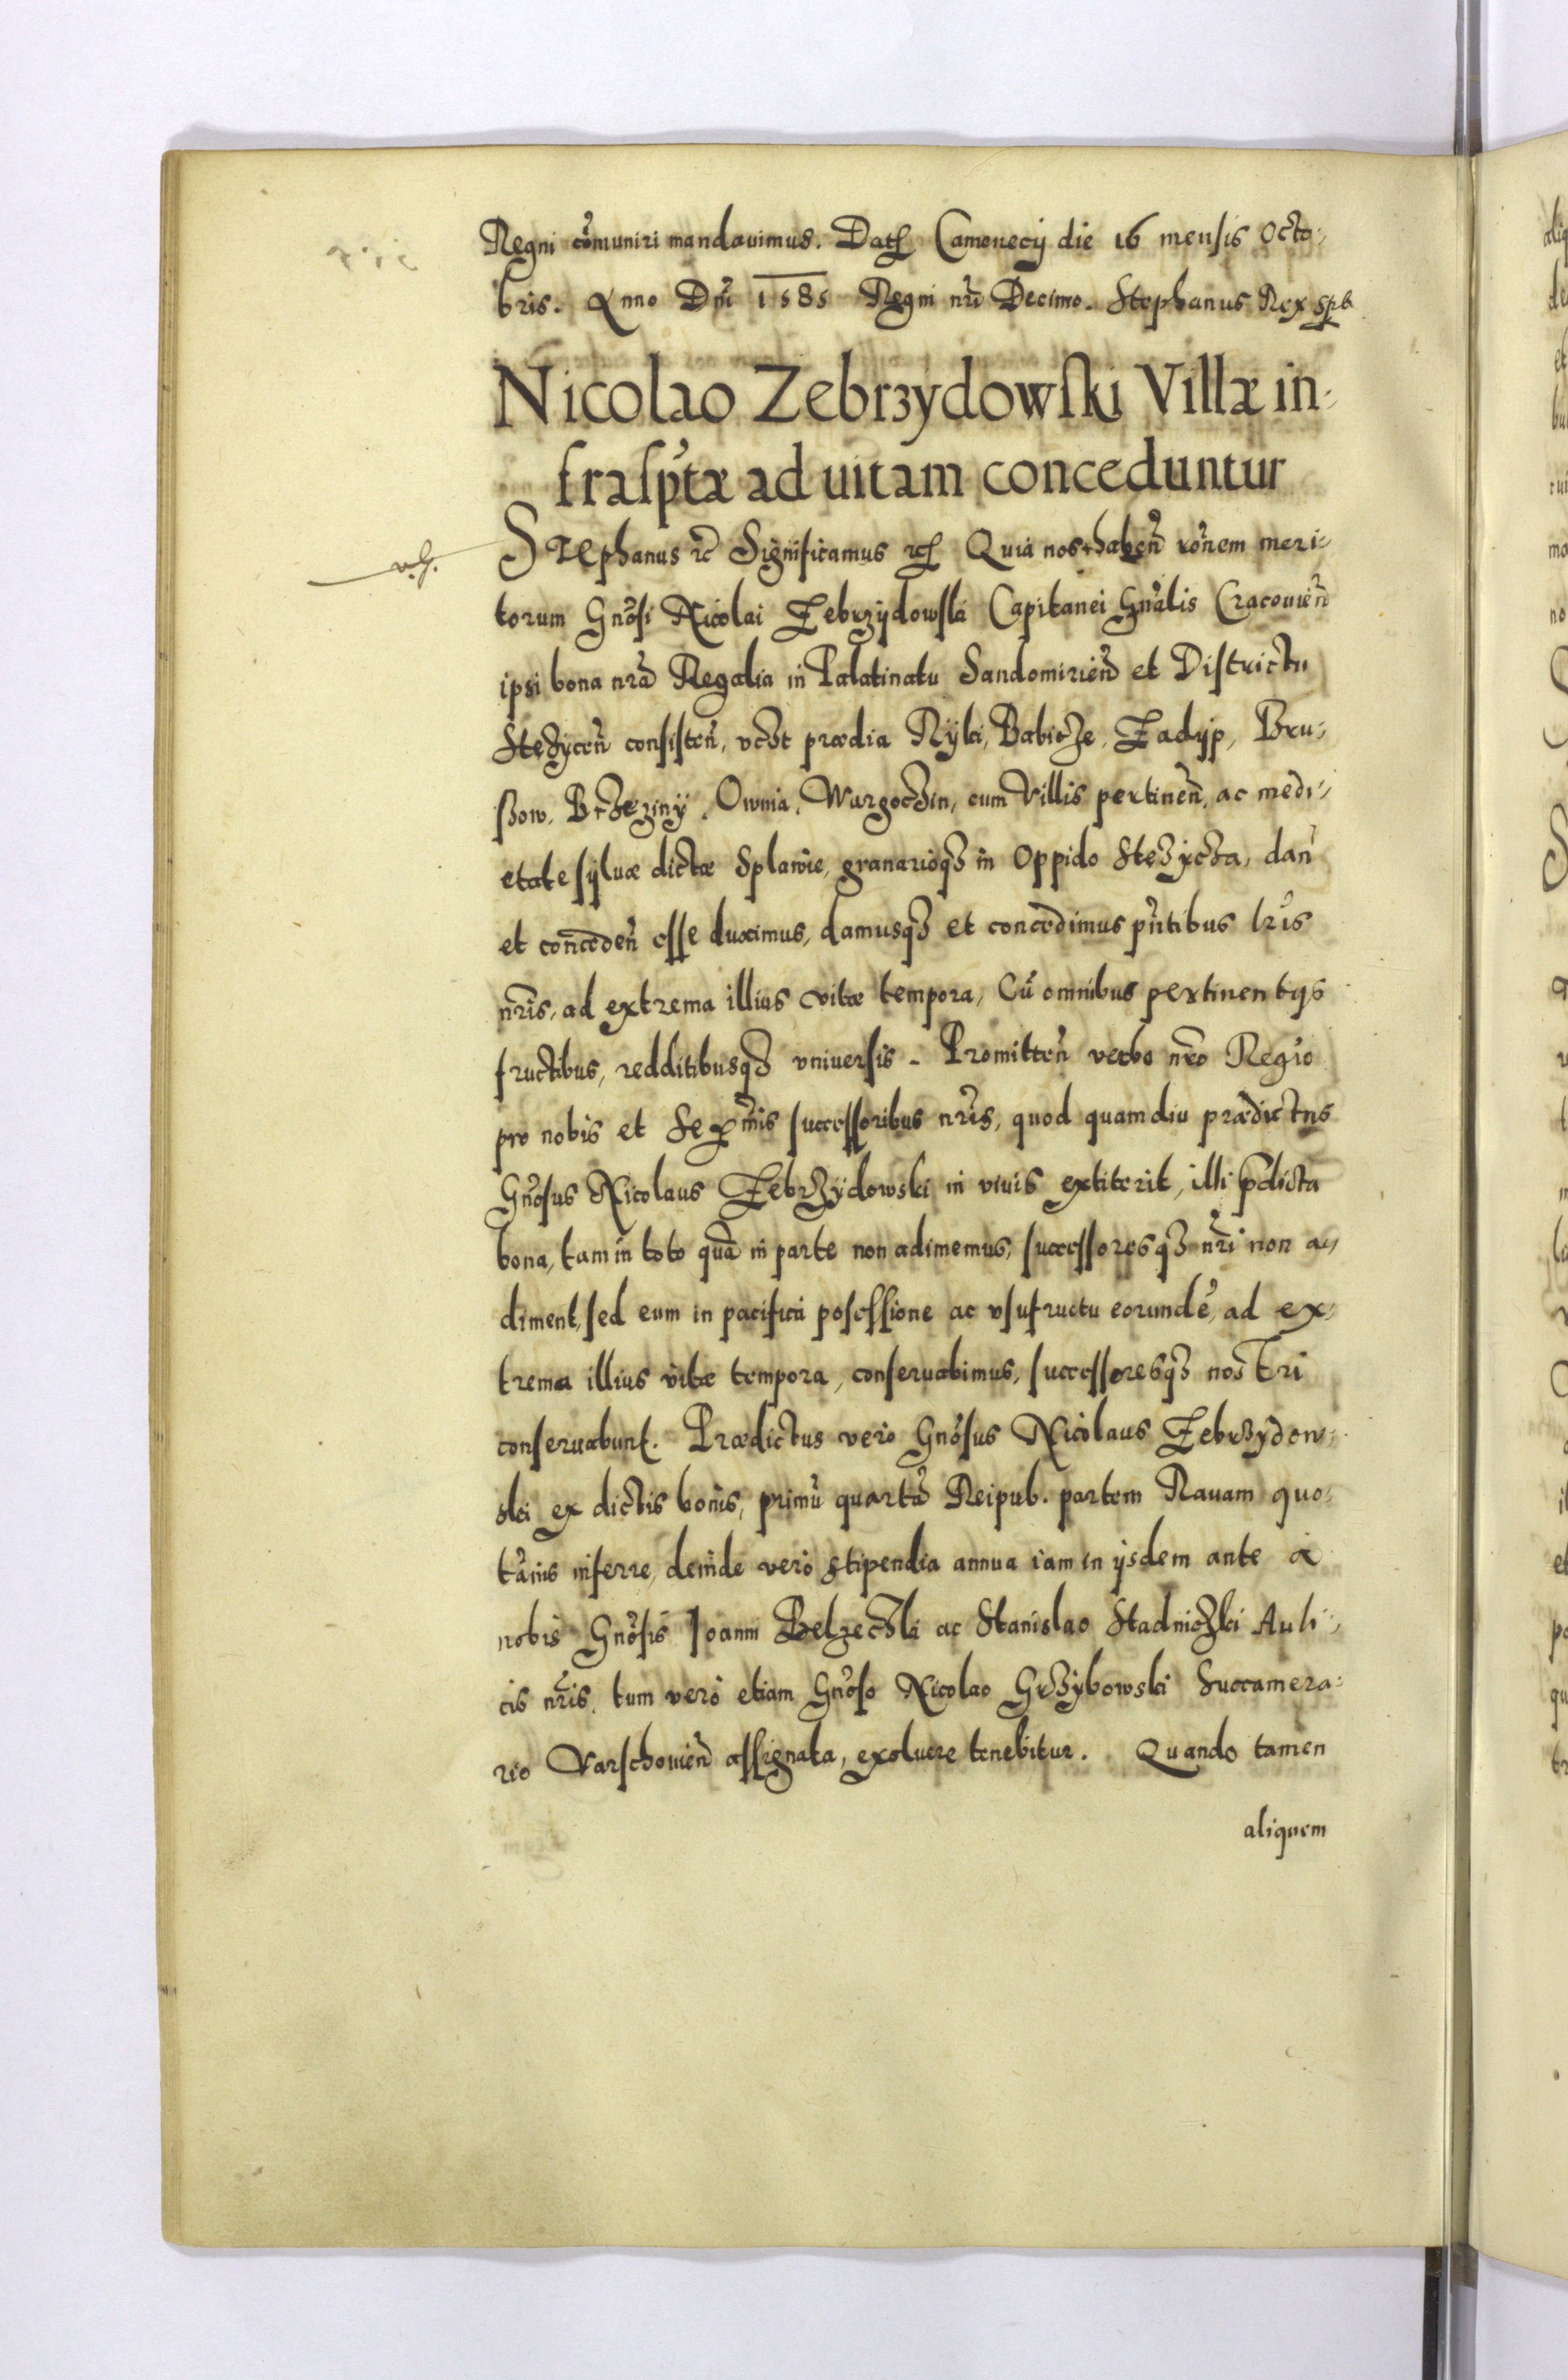 Regni cõmuniri mandauimus. Dat. Camenecij die 16 mensis Octo-
bris. Anno Dñi 1585 Regni nrĩ Decimo. Stephanus Rex spt.
Nicolao Zebrzydowski Villæ in-
frasptæ ad uitam conceduntur
Stephanus rc Significamus rc Quia nos habeñ rõnem meri-
torum Gnõsi Nicolai Zebrzydowski Capitanei Gnãlis Cracouień
ipsi bona nrã Regalia in Palatinatu Sandomirień et Districtu
Stezyceñ consisteñ, vcꝫt prædia Ryki, Babicze, Zadyp, Bru-
ssow, Brzeziny, Ownia, Wargoczin, cum Villis pertineñ, ac medi-
etate syluæ dictæ Splawie, granarioqꝫ in Oppido Stezycza, dañ
et concedeñ esse duximus, damusqꝫ et concedimus pñtibus lrĩs
nrĩs, ad extrema illius vitæ tempora, Cũ omnibus pertinentijs
fructibus, redditibusqꝫ vniuersis. Promitteñ verbo nrõ Regio
pro nobis et Serm̃is successoribus nrĩs, quod quamdiu prædictus
Gnõsus Nicolaus Zebrzydowski in viuis extiterit, illi pdicta
bona, tam in toto quã in parte non adimemus, successoresqꝫ nrĩ non a-
diment, sed eum in pacifica posessione ac vsufructu eorundẽ, ad ex-
trema illius vitæ tempora, conseruabimus, successoresqꝫ nostri
conseruabunt. Prædictus vero Gnõsus Nicolaus Zebrzydow-
ski ex dictis bonis, primũ quartã Reipub. partem Rauam quo-
tãnis inferre, deinde vero stipendia annua iam in ijsdem ante a
nobis Gnõsis Ioanni Belzeczki ac Stanislao Stadniczki Auli-
cis nrĩs, tum vero etiam Gnõso Nicolao Grzybowski Succamera-
rio Varschouień assignata, exoluere tenebitur. Quando tamen
aliquem